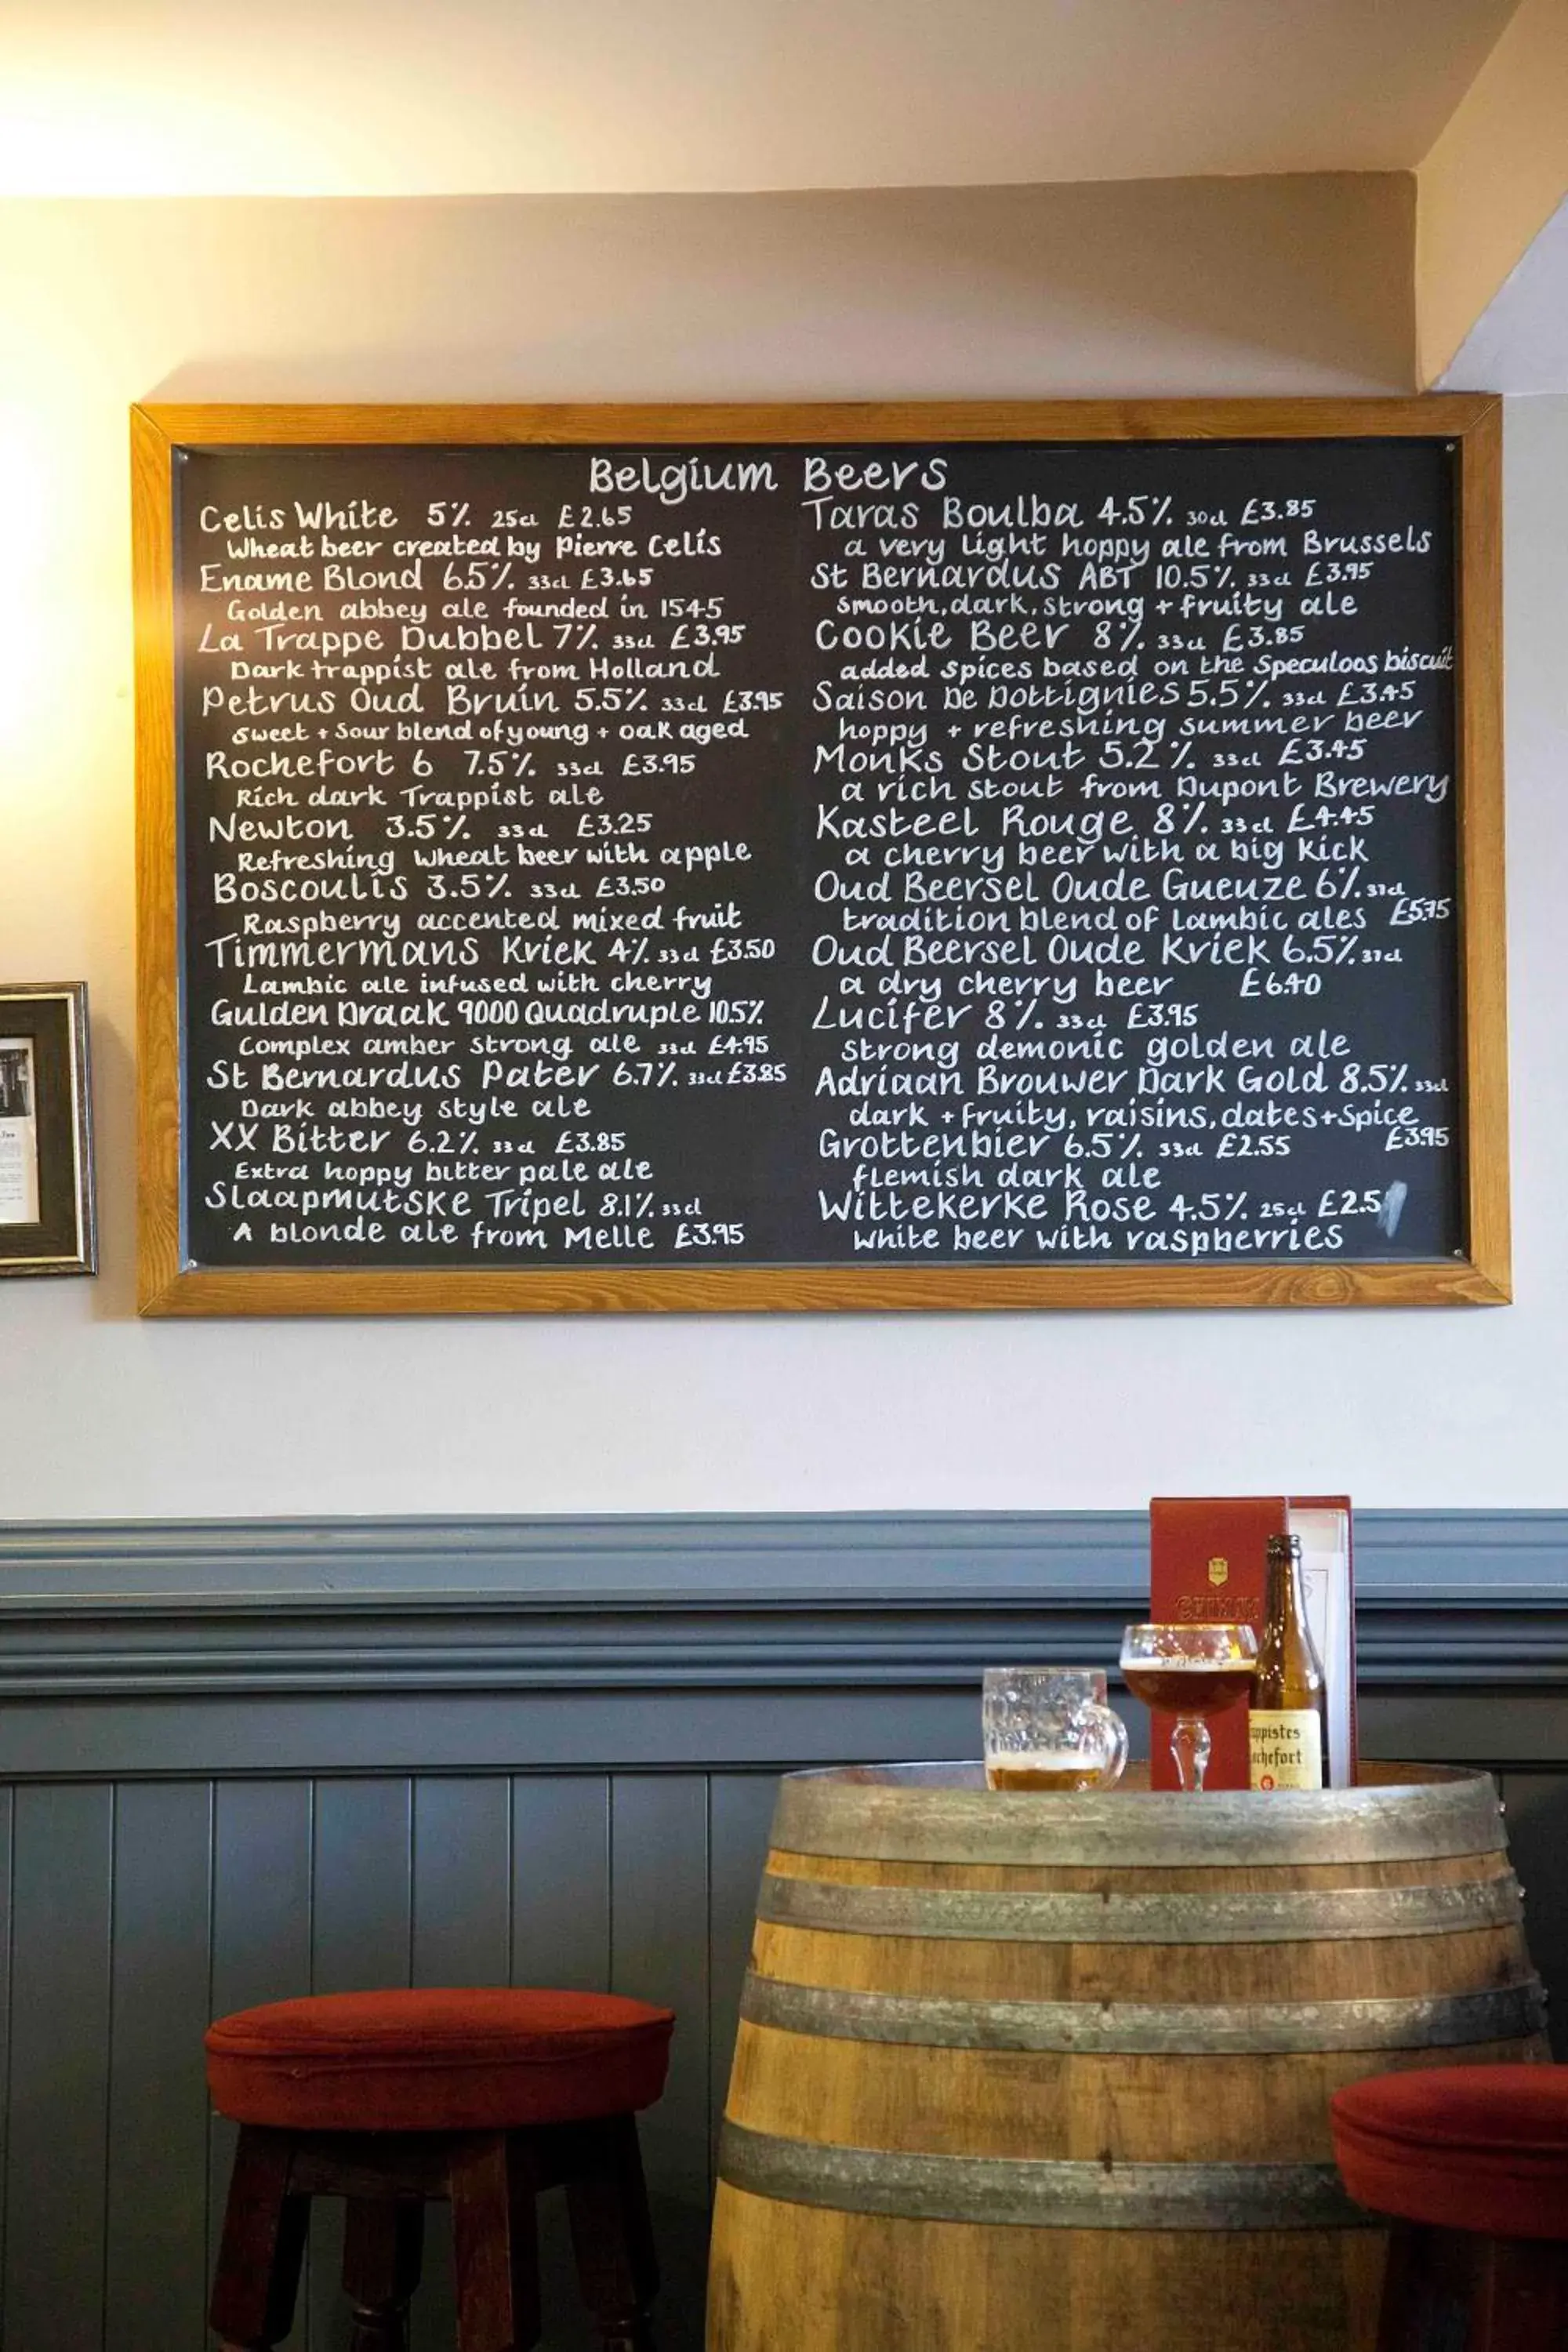 Belgium Beers
Celis White 5% 25cl £2.65
Wheat beer created by Pierre Celis
Ename Blond 6.5% 33cl £3.65
Golden abbey ale founded in 1545
La Trappe Dubbel 7% 33cl £3.95
Dark trappist ale from Holland
Petrus Oud Bruin 5.5% 33cl £3.95
sweet + sour blend of young + oak aged
Rochefort 6 7.5% 33cl £3.95
Rich dark Trappist ale
Newton 3.5% 33cl £3.25
Refreshing wheat beer with apple
Boscoulis 3.5% 33cl £3.50
Raspberry accented mixed fruit
Timmermans Kriek 4% 33cl £3.50
Lambic ale infused with cherry
Gulden Draak 9000 Quadruple 10.5%
Complex amber strong ale 33cl £4.95
St Bernardus Pater 6.7% 33cl £3.85
Dark abbey style ale
XX Bitter 6.2% 33cl £3.85
Extra hoppy bitter pale ale
Slaapmutske Tripel 8.1% 33cl
A blonde ale from Melle £3.95
Taras Boulba 4.5% 30cl £3.85
a very light hoppy ale from Brussels
St Bernardus ABT 10.5% 33cl £3.95
smooth, dark, strong + fruity ale
Cookie Beer 8% 33cl £3.85
added spices based on the Speculoos biscuit
Saison De Dottignies 5.5% 33cl £3.45
hoppy + refreshing summer beer
Monks Stout 5.2% 33cl £3.45
a rich stout from Dupont Brewery
Kasteel Rouge 8% 33cl £4.45
a cherry beer with a big kick
Oud Beersel Oude Gueuze 6% 37cl
tradition blend of lambic ales £5.75
Oud Beersel Oude Kriek 6.5% 37cl
a dry cherry beer £6.40
Lucifer 8% 33cl £3.95
strong demonic golden ale
Adriaan Brouwer Dark Gold 8.5% 33cl
dark + fruity, raisins, dates + spice
£3.95
Grottenbier 6.5% 33cl £2.55
flemish dark ale
Wittekerke Rose 4.5% 25cl £2.5
white beer with raspberries
CHIMAY
appistes
chefort
6